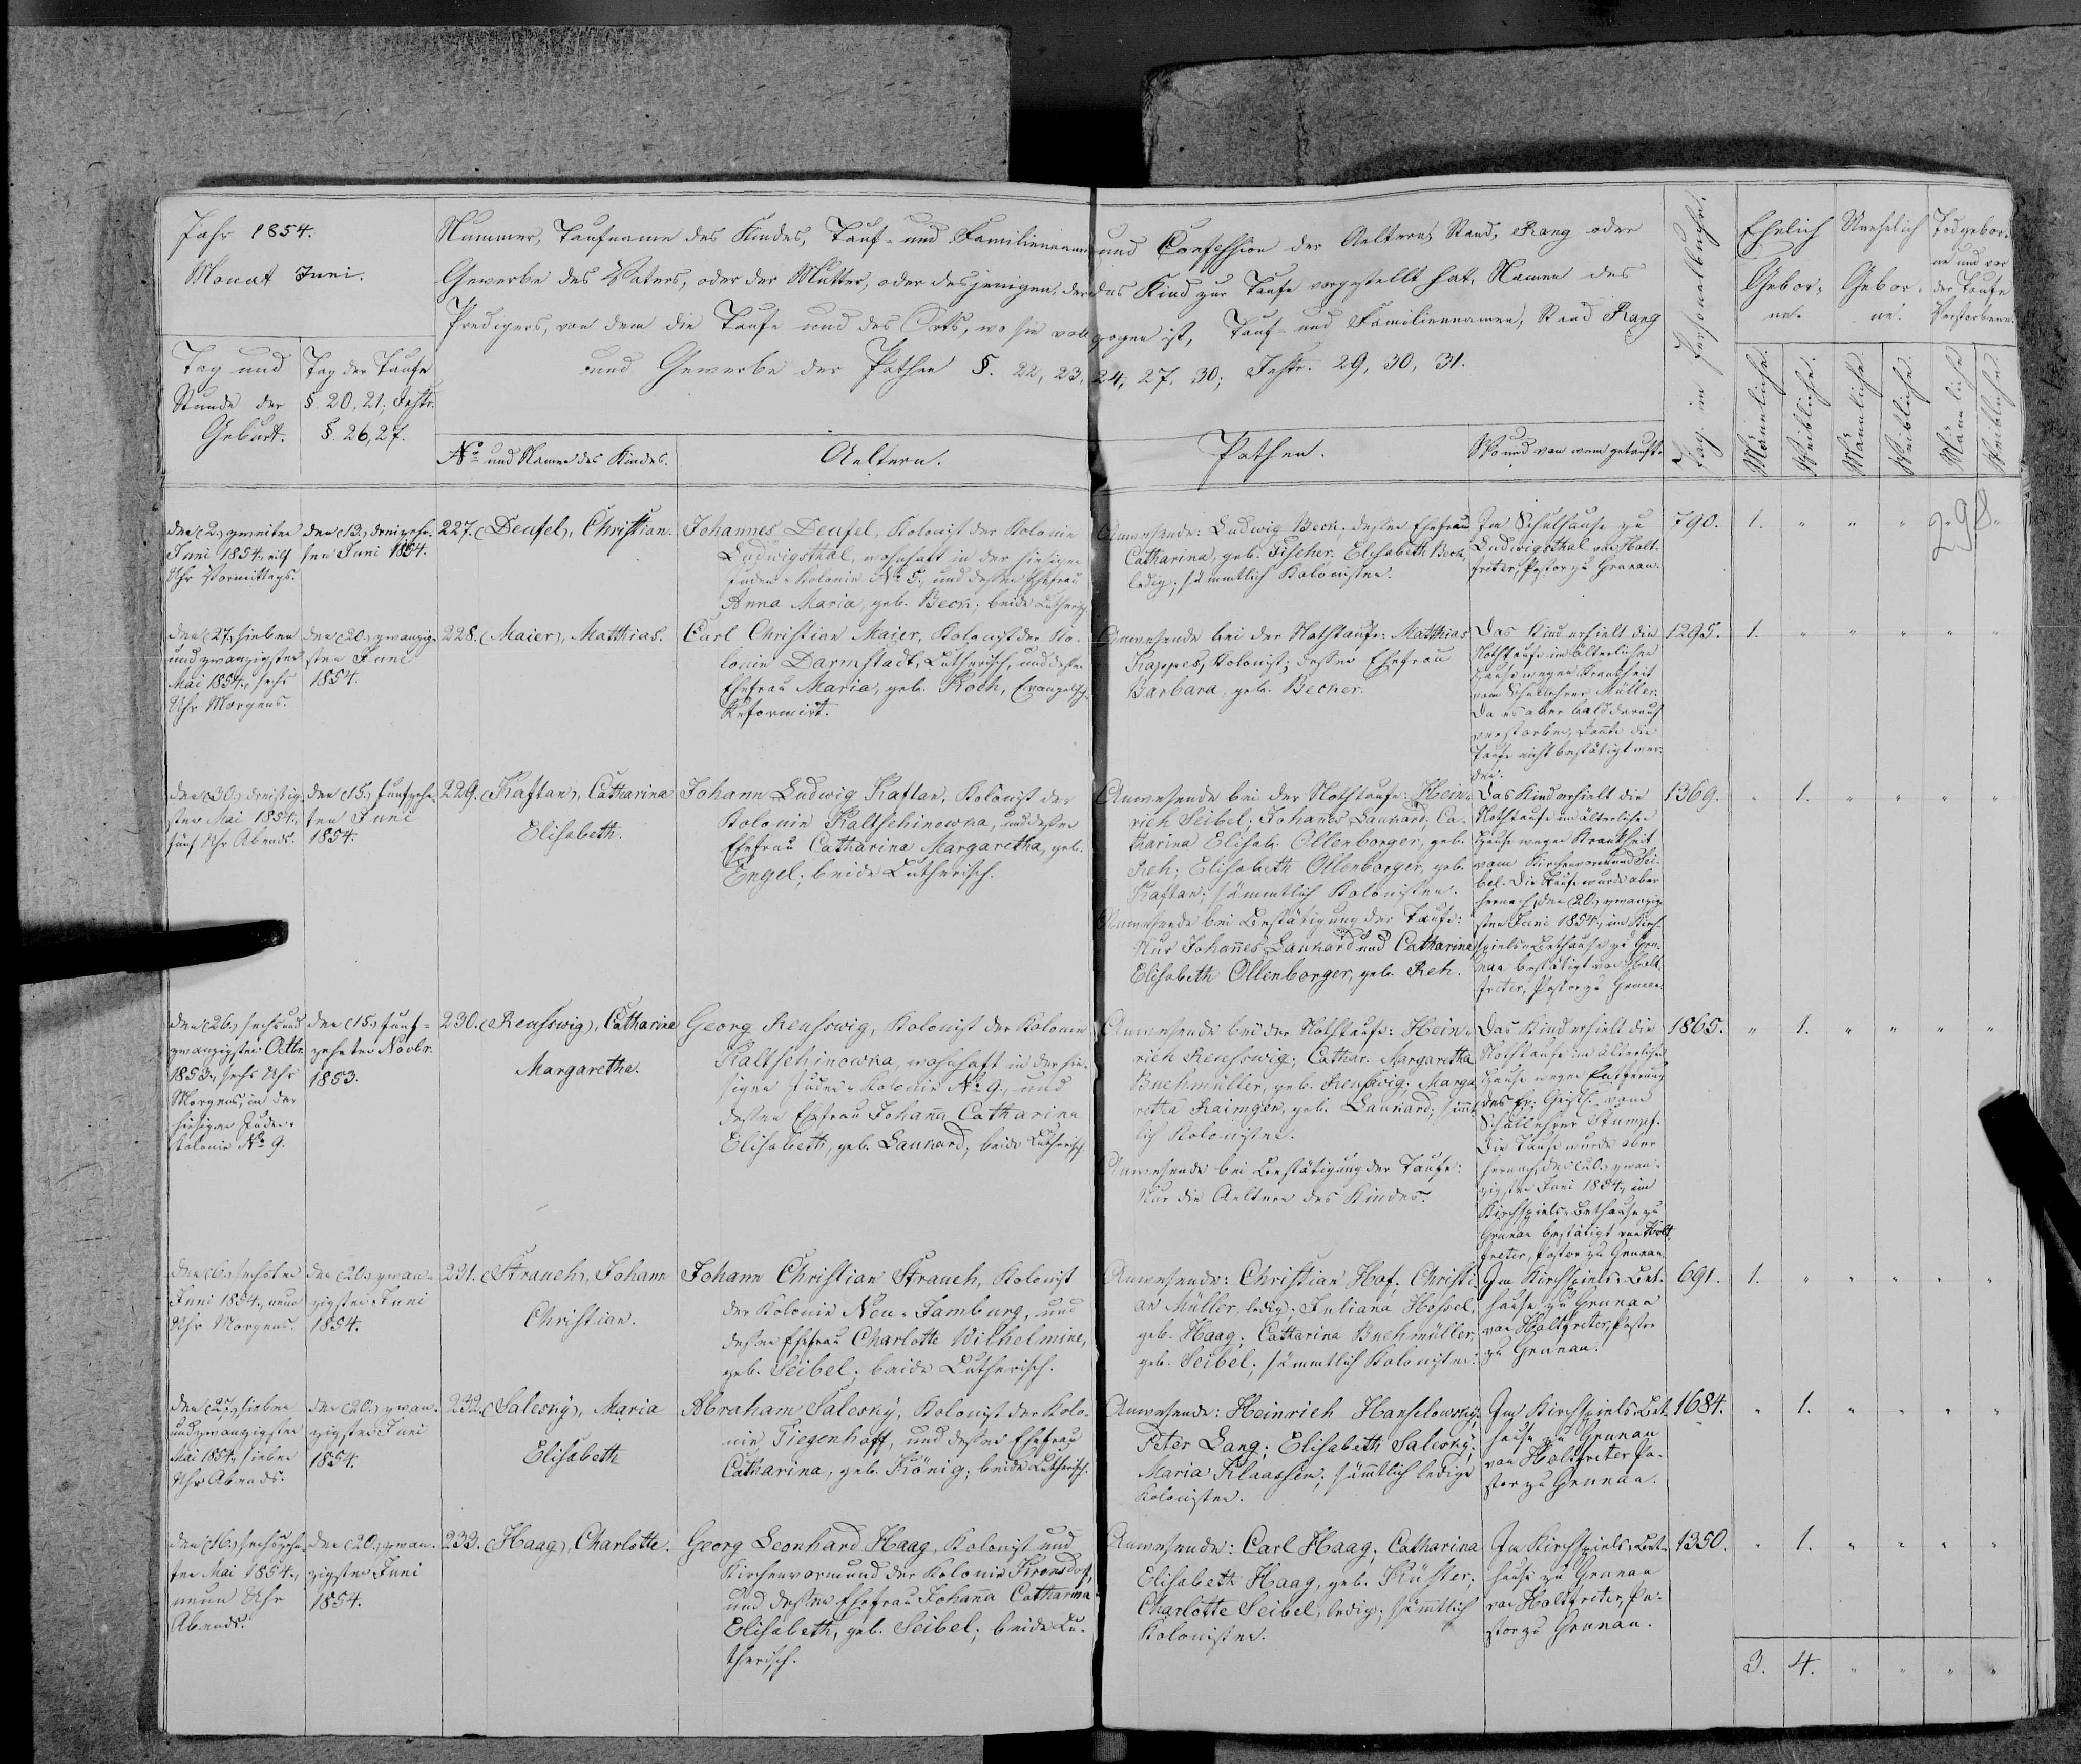 Jahr 1854.
Monat Juni.
Tag und
Stunde der
Geburt.
Tag der Taufe
§. 20, 21; Instr.
§. 26, 27.
Nummer, Taufname des Kindes, Tauf- und Familiennamen und Confession der Aeltern, Stand, Rang oder
Gewerbe des Vaters, oder der Mutter, oder desjenigen, der das Kind zur Taufe vorgestellt hat, Namen des
Predigers, von dem die Taufe und des Orts, wo sie vollzogen ist, Tauf- und Familiennamen, Stand Rang
und Gewerbe der Pathen §. 22, 23, 24, 27, 30; Instr. 29, 30, 31.
No und Namen des Kindes.
Aeltern.
Pathen.
Wo und von wem getauft.
Pag. im Personalbuche.
Ehelich
Gebor-
ne.
Unehelich
Gebor-
ne.
Todgebor-
ne und vor
der Taufe
Verstorbene.
Männliche.
Weibliche.
Männliche
Weibliche.
Männliche
Weibliche
298
den (2.) zweiten
Juni 1854, elf
Uhr Vormittags.
den (13.) dreizehn-
ten Juni 1854.
227. (Deufel), Christian.
Johannes Deufel, Kolonist der Kolonie
Ludwigsthal, wohnhaft in der hiesigen
Juden-Kolonie No 5, und dessen Ehefrau
Anna Maria, geb. Beck; beide Lutherisch.
Anwesende: Ludwig Beck; dessen Ehefrau
Catharina, geb. Fischer. Elisabeth Beck,
ledig; sämmtlich Kolonisten.
Im Schulhause zu
Ludwigsthal von Holt-
freter, Pastor zu Grunau.
790. 1. " " " " "
den (27.) sieben
und zwanzigsten
Mai 1854, sechs
Uhr Morgens.
den (20.) zwanzig-
sten Juni
1854.
228. (Maier), Matthias.
Carl Christian Maier, Kolonist der Ko-
lonie Darmstadt, Lutherisch, und dessen
Ehefrau Maria, geb. Koch, Evangelisch-
Reformirt.
Anwesende bei der Nothtaufe: Matthias
Kappes, Kolonist; dessen Ehefrau
Barbara, geb. Becker.
Das Kind erhielt die
Nothtaufe im älterlichen
Hause wegen Krankheit
vom Schullehrer Müller.
Da es aber bald darauf
verstorben, konnte die
Taufe nicht bestätigt wer-
den.
1295. 1. " " " " "
den (30.) dreißig-
sten Mai 1854,
fünf Uhr Abends.
den (15.) fünfzehn-
ten Juni
1854.
229. (Kaftan), Catharina
Elisabeth.
Johann Ludwig Kaftan, Kolonist der
Kolonie Kaltschinowka, und dessen
Ehefrau Catharina Margaretha, geb.
Engel; beide Lutherisch.
Anwesende bei der Nothtaufe: Hein-
rich Seibel; Johannes Laukard, Ca-
tharina Elisab. Ollenborger, geb.
Reh; Elisabeth Ollenborger, geb.
Kaftan; sämmtlich Kolonisten.
Anwesende bei Bestätigung der Taufe:
Nur Johannes Laukard und Catharina
Elisabeth Ollenborger, geb. Reh.
Das Kind erhielt die
Nothtaufe im älterlichen
Hause wegen Krankheit
vom Kirchenvormund Sei-
bel. Die Taufe wurde aber
hernach, den (20.) zwanzig-
sten Juni 1854, im Kirch-
spiels-Bethause zu Gru-
nau bestätigt von Holt-
freter, Pastor zu Grunau.
1369. " 1. " " " "
den (26.) sechs und
zwanzigsten Octbr.
1853, sechs Uhr
Morgens, in der
hiesigen Juden-
Kolonie No 9.
den (15.) fünf-
zehnten Novbr.
1853.
230. (Reusswig), Catharina
Margaretha.
Georg Reusswig, Kolonist der Kolonie
Kaltschinowka, wohnhaft in der hie-
sigen Juden-Kolonie No 9, und
dessen Ehefrau Johanna Catharina
Elisabeth, geb. Laukard; beide Lutherisch.
Anwesende bei der Nothtaufe: Hein-
rich Reusswig; Cathar. Margaretha
Buchmüller, geb. Reusswig; Marga-
retha Raimger, geb. Laukard; sämmt-
lich Kolonisten.
Anwesende bei Bestätigung der Taufe:
Nur die Aeltern des Kindes.
Das Kind erhielt die
Nothtaufe im älterlichen
Hause wegen Entfernung
des Ev. Geistl. vom
Schullehrer Stumpf.
Die Taufe wurde aber
hernach, den (20.) zwan-
zigsten Juni 1854, im
Kirchspiels-Bethause zu
Grunau bestätigt von Holt-
freter, Pastor zu Grunau.
1865. " 1. " " " "
den (6.) sechsten
Juni 1854, neun
Uhr Morgens.
den (20.) zwan-
zigsten Juni
1854.
231. (Strauch), Johann
Christian.
Johann Christian Strauch, Kolonist
der Kolonie Neu-Jamburg, und
dessen Ehefrau Charlotte Wilhelmine,
geb. Seibel; beide Lutherisch.
Anwesende: Christian Hof; Christi-
an Müller, ledig; Juliana Hossel,
geb. Haag; Catharina Buchmüller,
geb. Seibel; sämmtlich Kolonisten.
Im Kirchspiels-Bet-
hause zu Grunau
von Holtfreter, Pastor
zu Grunau.
691. 1. " " " " "
den (27.) sieben
und zwanzigsten
Mai 1854, sieben
Uhr Abends.
den (20.) zwan-
zigsten Juni
1854.
232. (Salesky), Maria
Elisabeth
Abraham Salesky, Kolonist der Kolo-
nie Tiegenhoff, und dessen Ehefrau
Catharina, geb. König; beide Lutherisch.
Anwesende: Heinrich Hanselowsky;
Peter Lang; Elisabeth Salesky;
Maria Klaassen; sämmtlich ledige
Kolonisten.
Im Kirchspiels-Bet-
hause zu Grunau
von Holtfreter, Pa-
stor zu Grunau.
1684. " 1. " " " "
den (16.) sechszehn-
ten Mai 1854,
neun Uhr
Abends.
den (20.) zwan-
zigsten Juni
1854.
233. (Haag), Charlotte.
Georg Leonhard Haag, Kolonist und
Kirchenvormund der Kolonie Kronsdorf,
und dessen Ehefrau Johanna Catharina
Elisabeth, geb. Seibel; beide Lu-
therisch.
Anwesende: Carl Haag; Catharina
Elisabeth Haag, geb. Küster;
Charlotte Seibel, ledig; sämmtlich
Kolonisten.
Im Kirchspiels-Bet-
hause zu Grunau
von Holtfreter, Pa-
stor zu Grunau.
1350. " 1. " " " "
3. 4. " " " "